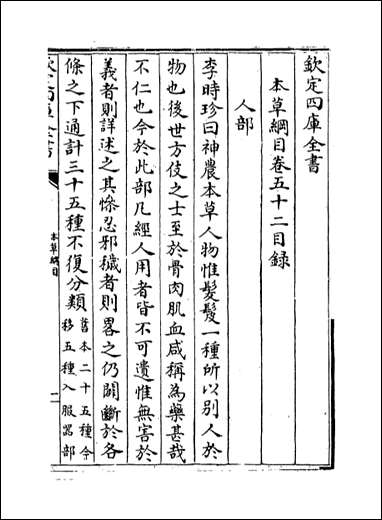 欽定四庫全書
本草綱目卷五十二目録
人部
李時珍曰神農本草人物惟髮髲一種所以别人於
物也後世方伎之士至於骨肉肌血咸稱為藥甚哉
不仁也今於此部凡經人用者皆不可遺惟無害於
義者則詳述之其惨忍邪穢者則畧之仍闢斷於各
條之下通計三十五種不復分類舊本二十五種今
移五種入服器部
本草綱目
一